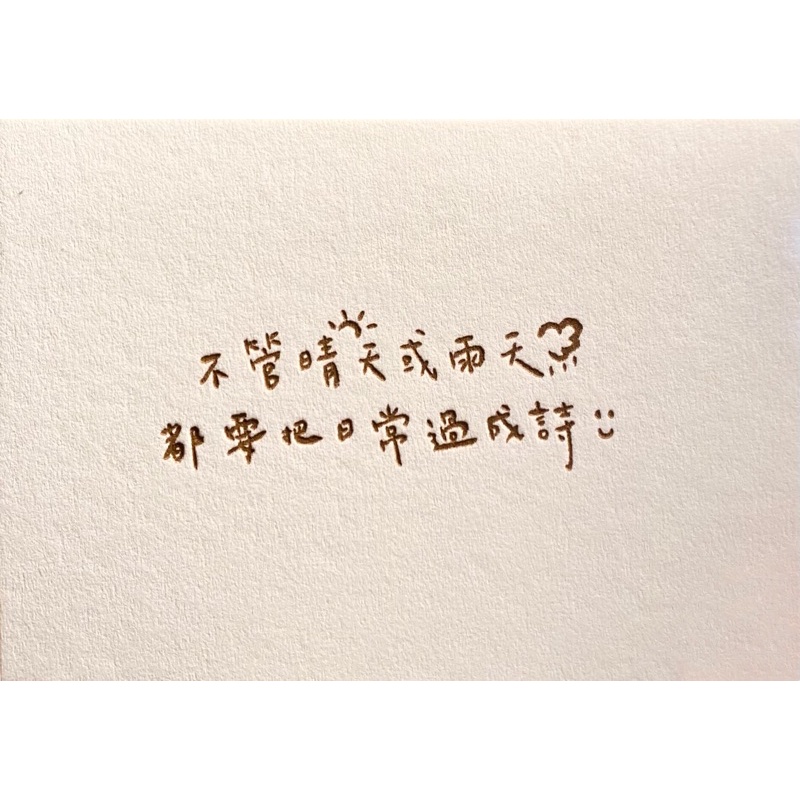 不管晴天或雨天
都要把日常過成詩